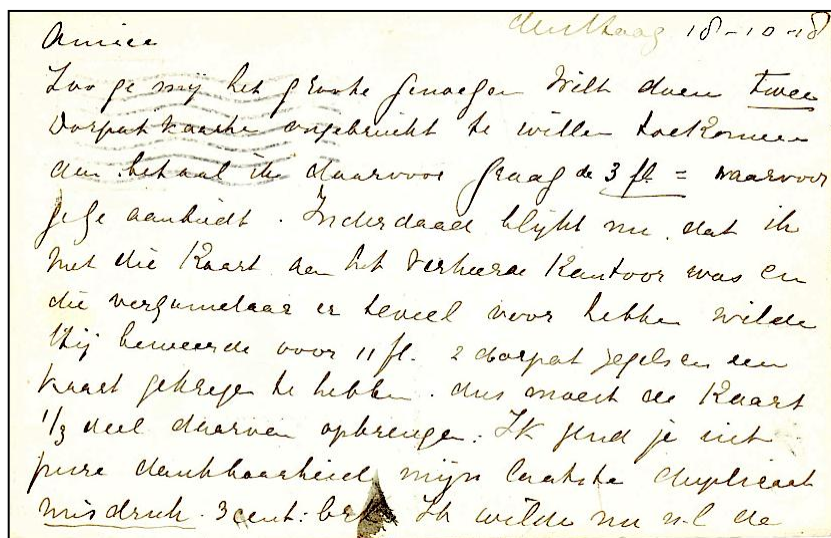 den Haag 18-10-18
Amice
Zoo ge mij het groote genoegen wilt doen twee
Dorpat kaarten ongebruikt te willen toekomen
dan betaal ik daarvoor graag de 3 fl = waarvoor
ge ze aanbiedt. Inderdaad blijkt nu dat ik
met die Kaart aan het verkeerde Kantoor was en
die verzamelaar er teveel voor hebben wilde
Hij beweerde voor 11 fl. 2 dorpat zegels en een
kaart gekregen te hebben. dus moest de Kaart
1/3 deel daarvan opbrengen. Ik zend je uit
pure dankbaarheid mijn laatste duplicaat
misdruk. 3 cent: Ik wilde nu n.l de